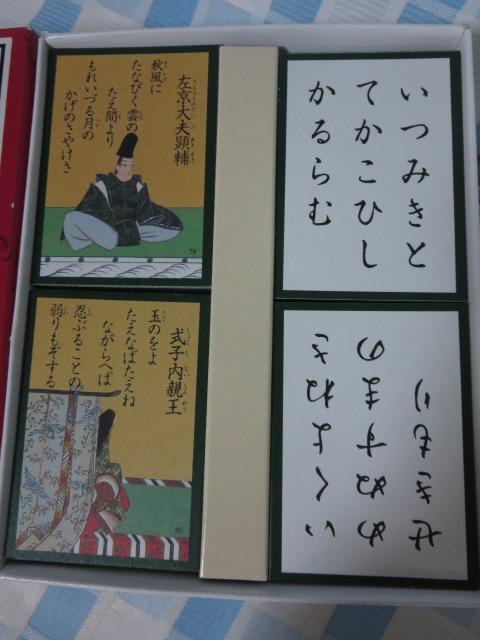 左京大夫顕輔
秋風に
たなびく雲の
たえ間より
もれいづる月の
かげのさやけさ
79
いつみきと
てかこひし
かるらむ
式子内親王
玉のをよ
たえなばたえね
ながらへば
忍ぶることの
弱りもぞする
いくよねさ
めぬすまの
せきもり